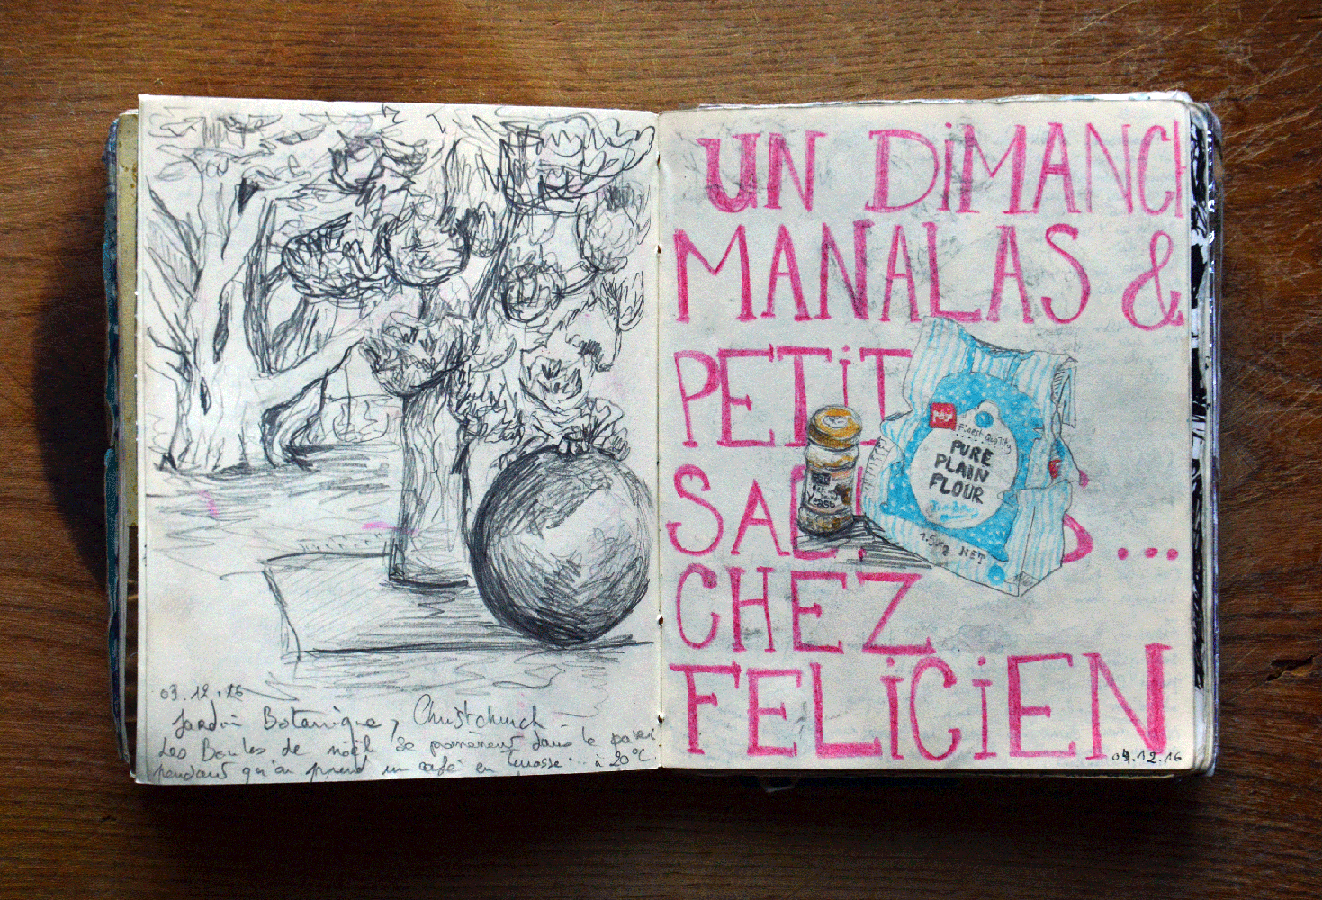 03.12.16
Jardin Botanique, Christchurch -
Les Boules de noël se promènent dans le
pendant qu'on prend un café en terrasse... à 20°C
UN DIMANCH
MANALAS &
PETIT
SA
...
CHEZ
FELICIEN
04.12.16
PURE
PLAIN
FLOUR
1.5kg NET